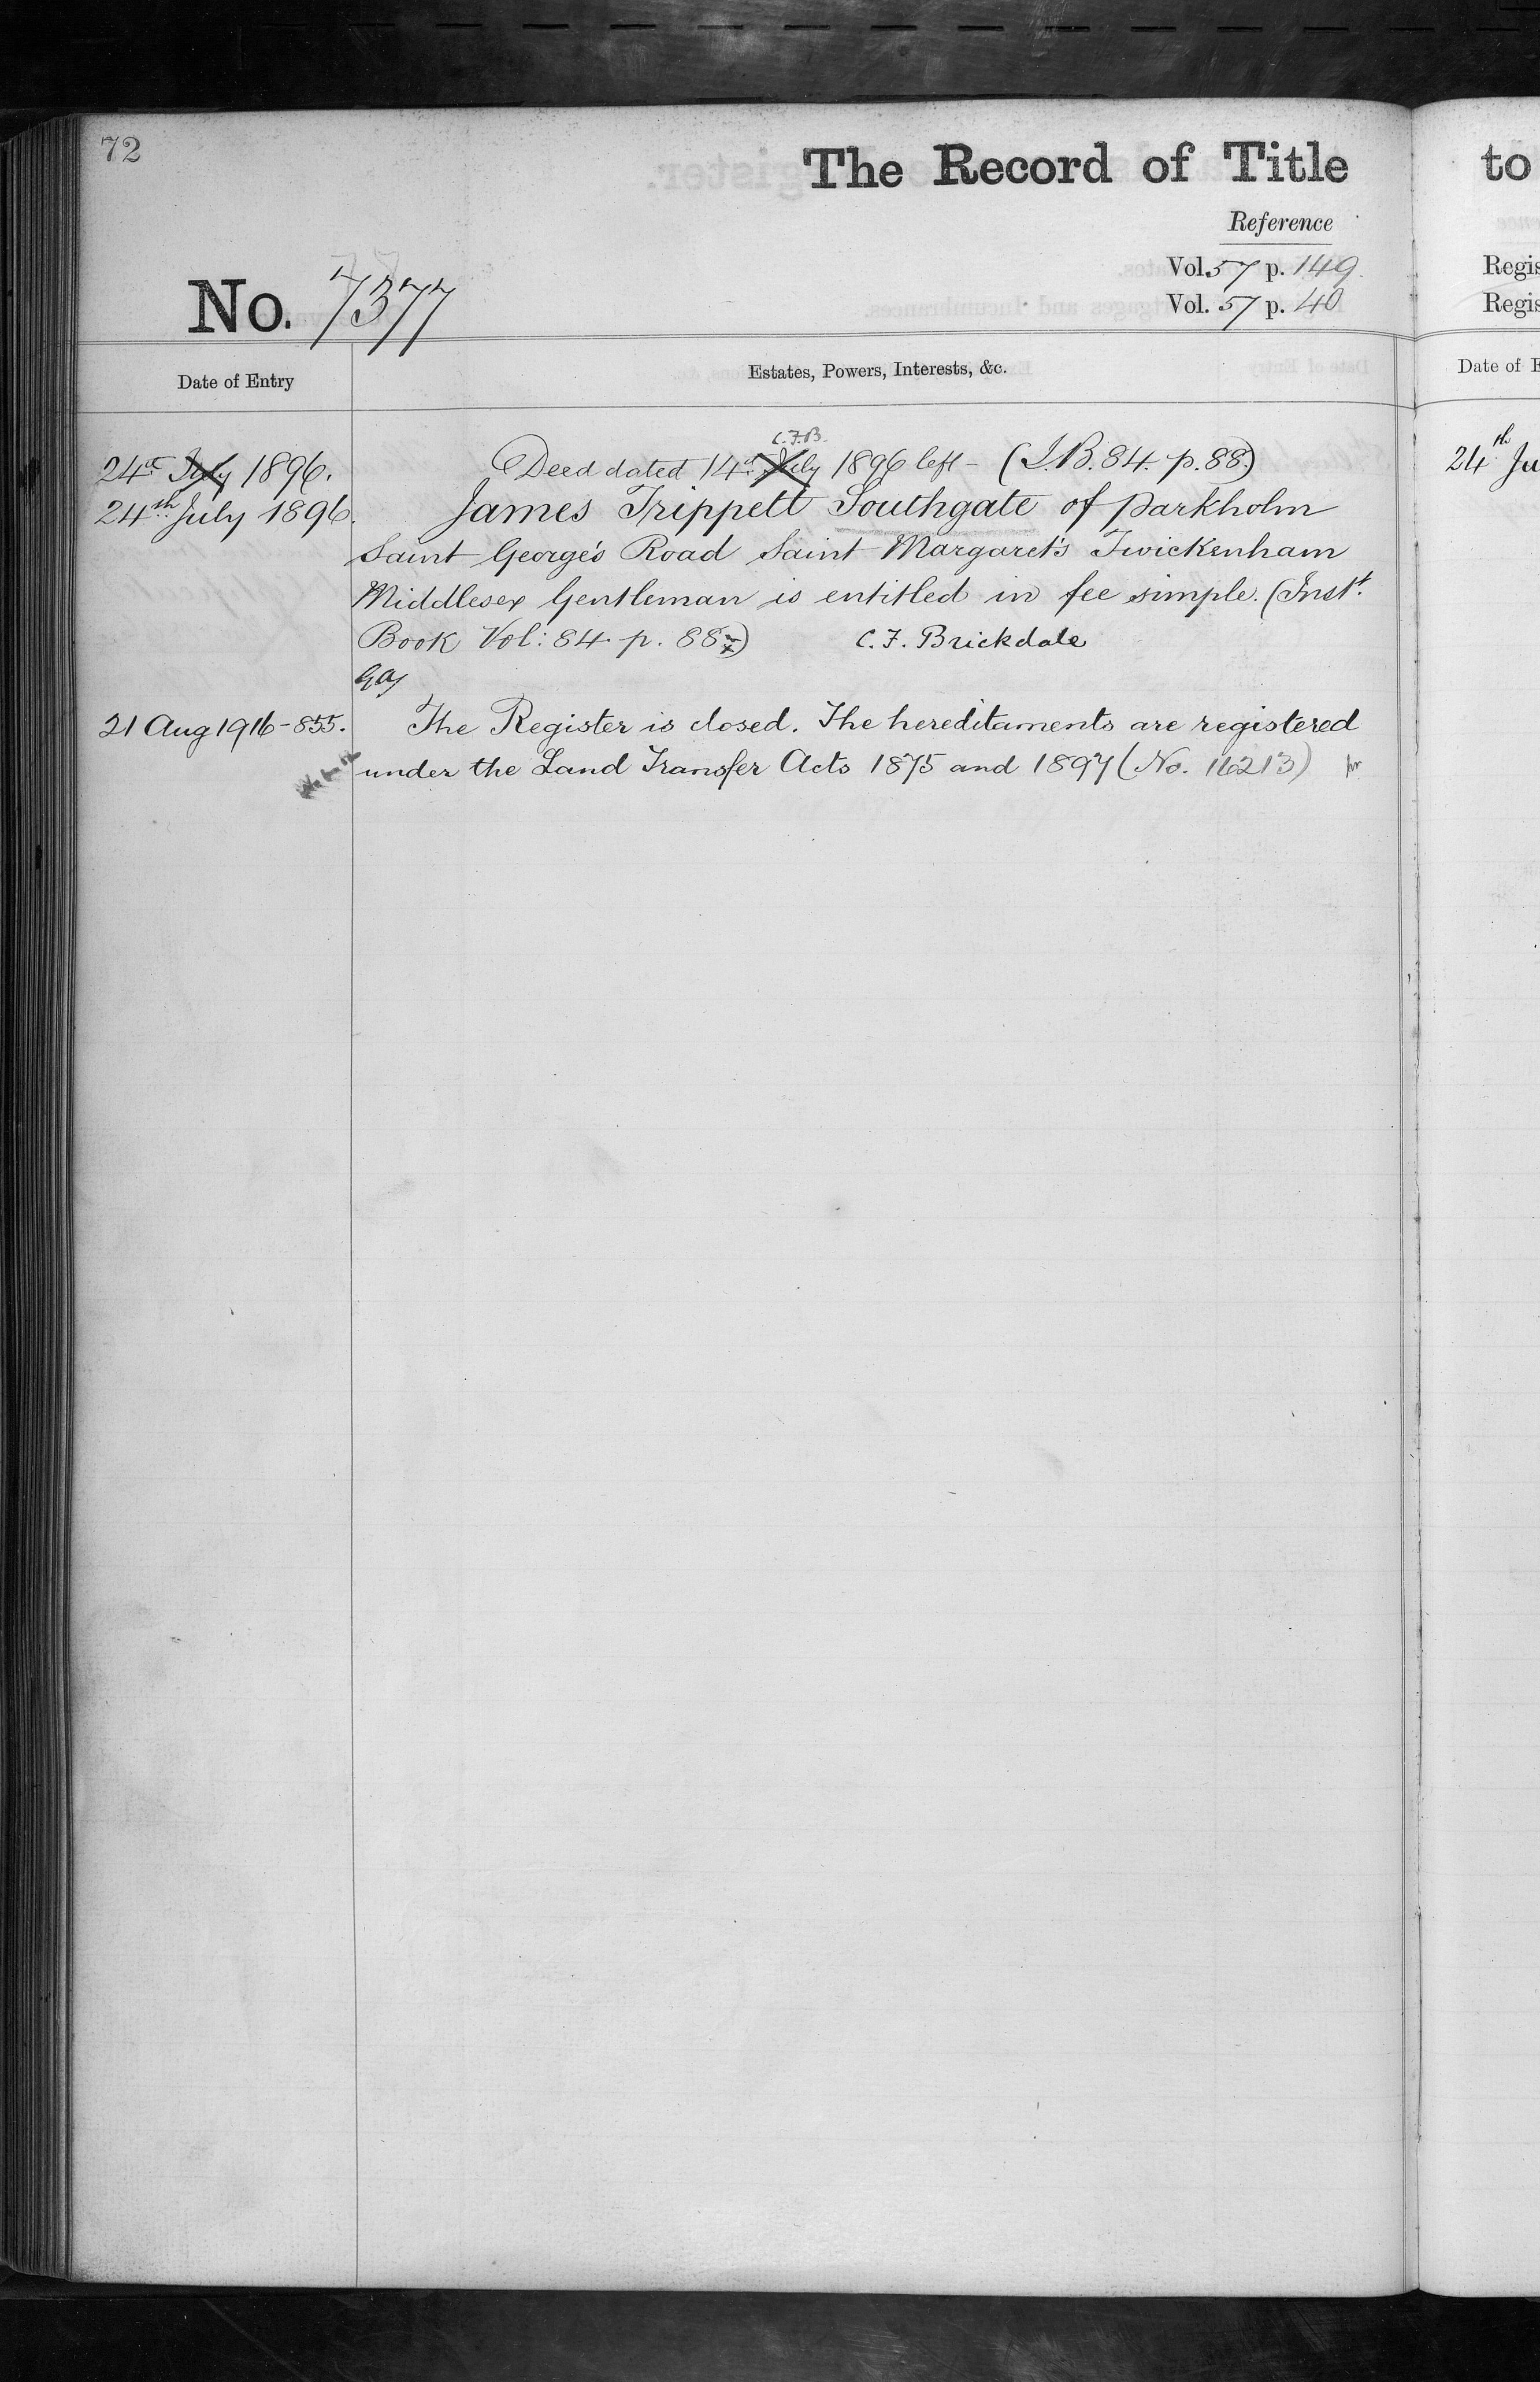 72
The Record of Title
Reference
Vol. 57 p. 149.
Vol. 57 p. 40
No. 7377
Date of Entry
Estates, Powers, Interests, &c.
C.F.B.
24th July 1896. Deed dated 14th July 1896 left - (I.B. 84. p. 88.)
24th July 1896. James Trippett Southgate of Parkholm
Saint George's Road Saint Margaret's Twickenham
Middlesex Gentleman is entitled in fee simple. (Inst.
Book Vol: 84. p. 88.) C. F. Brickdale
21 Aug 1916 - 855. The Register is closed. The hereditaments are registered
under the Land Transfer Acts 1875 and 1897 (No. 16213)
to
Regis
Regis
Date of E
24th Ju